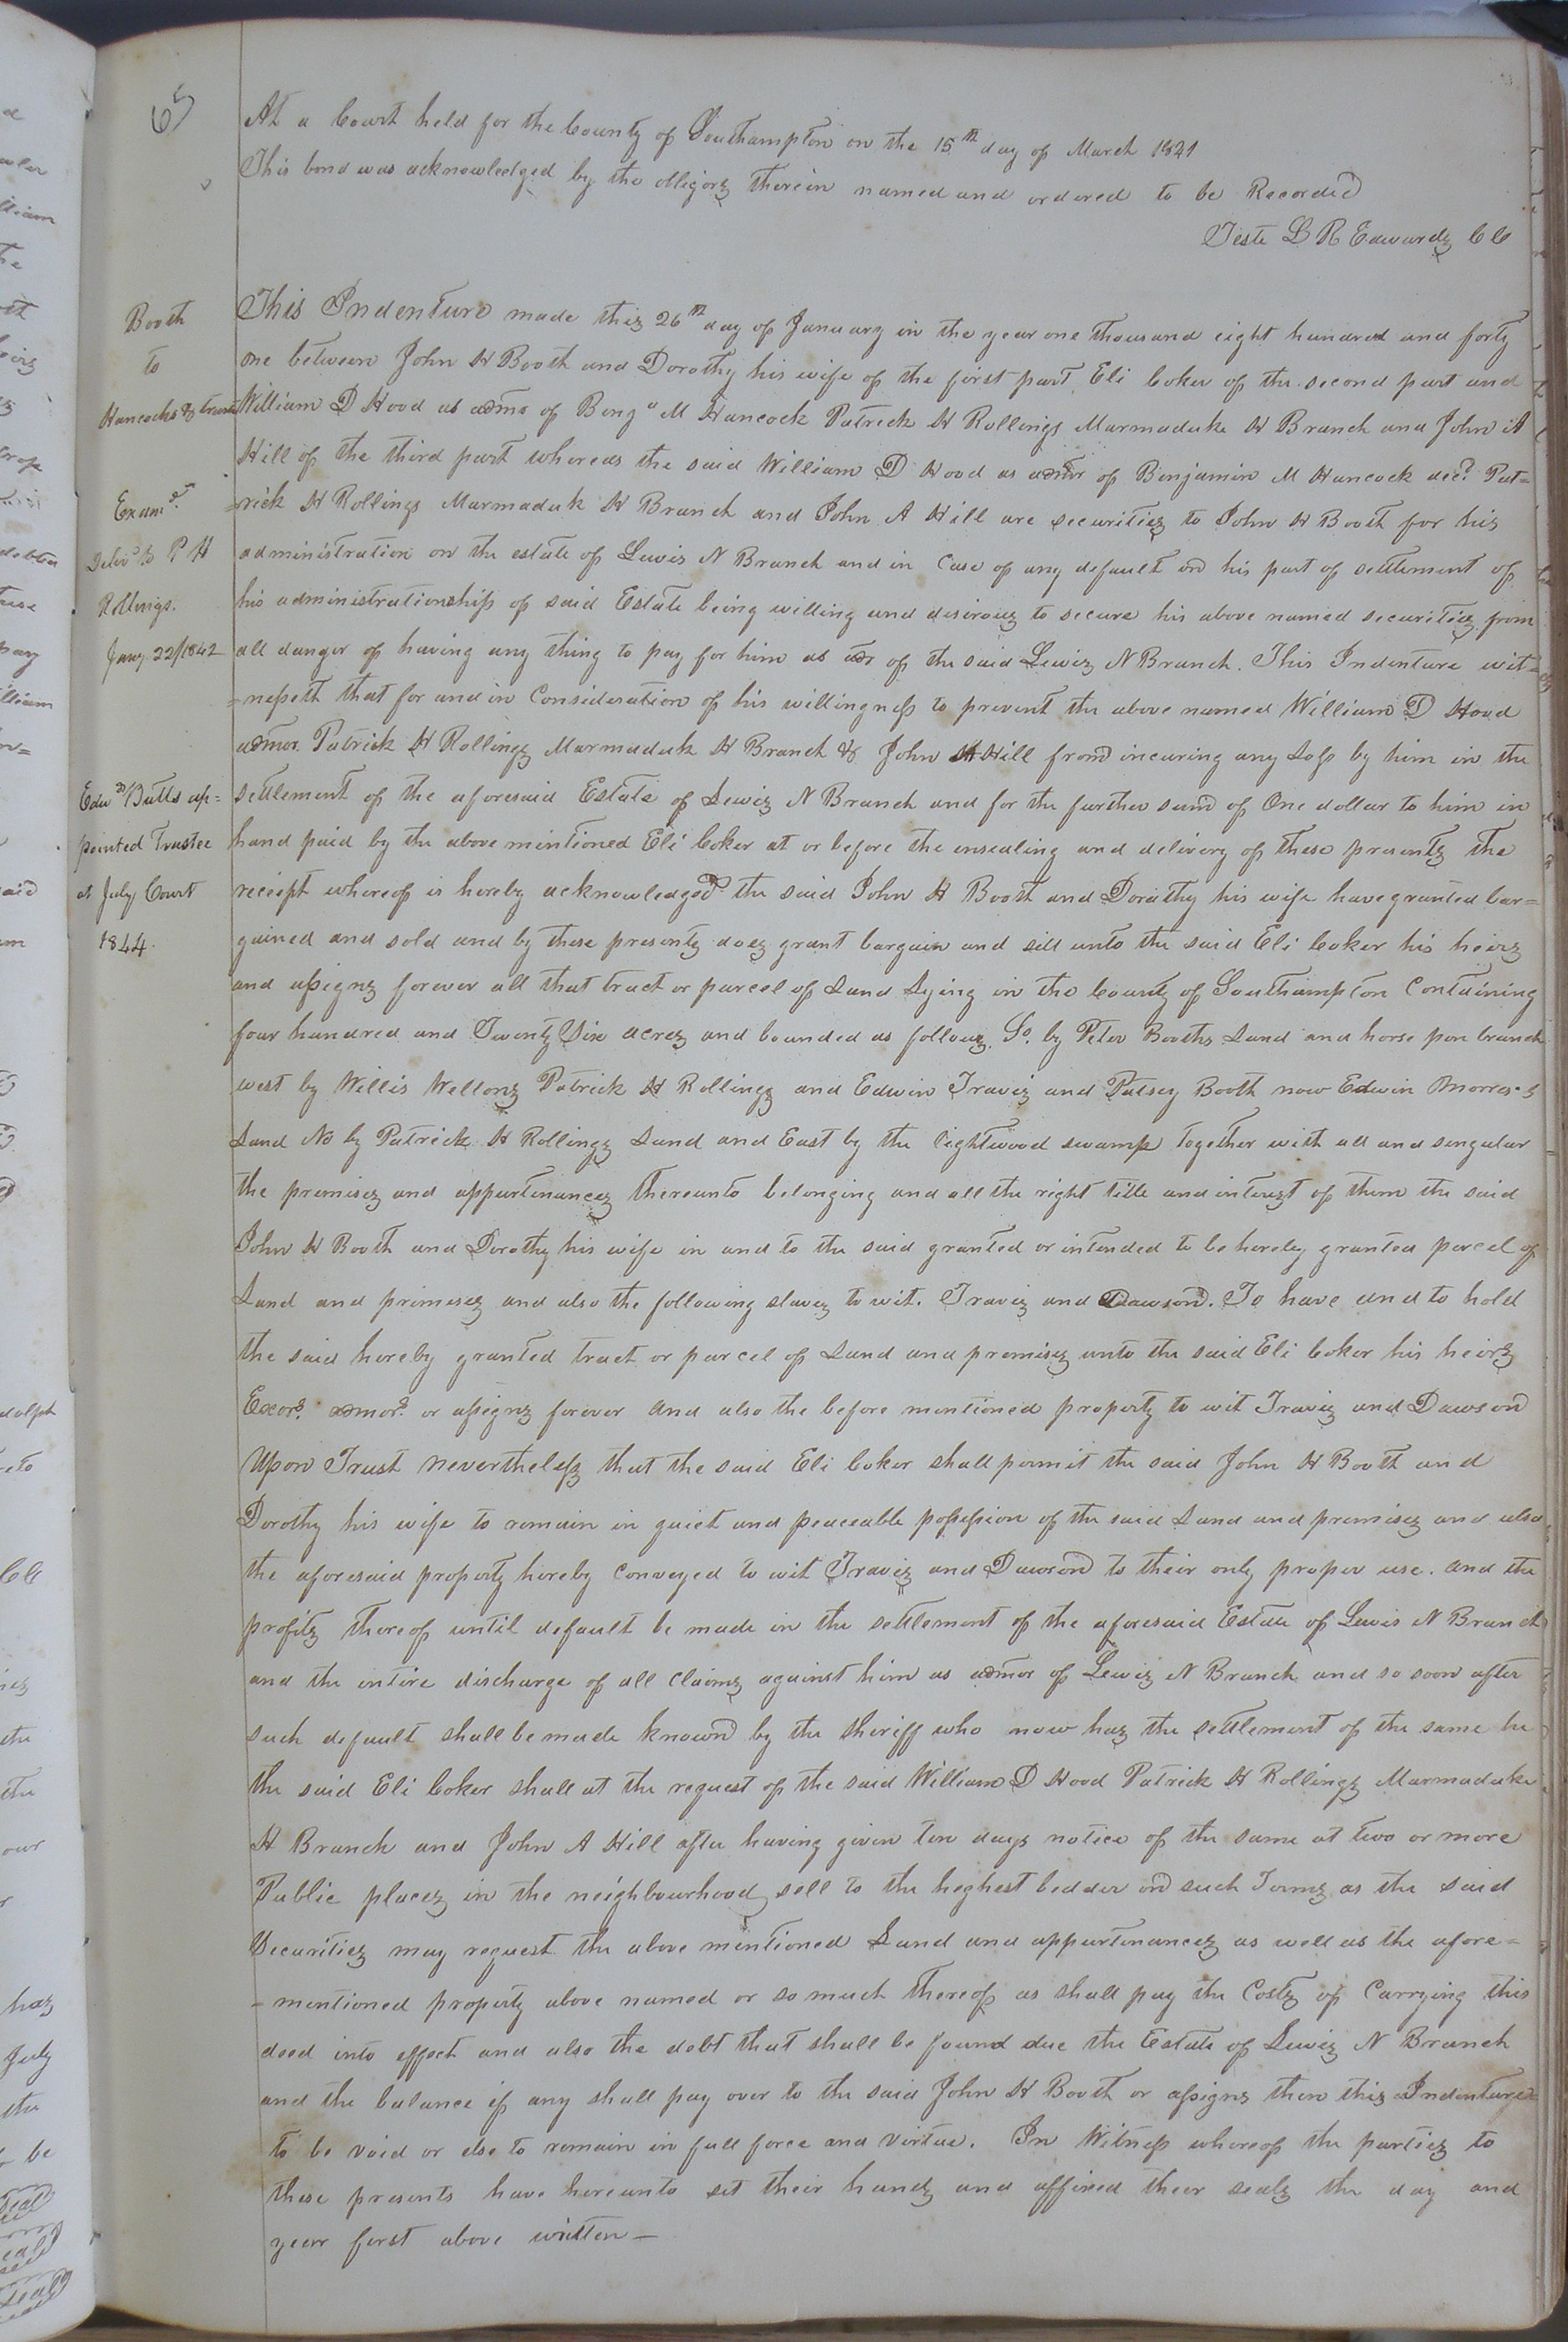 65
At a Court held for the County of Southampton on the 15th day of March 1841
This bond was acknowledged by the obligors therein named and ordered to be Recorded
Teste L R Edwards CC
Booth
to
Hancocks &
Examd.
Delivd to P H
Rollings.
Jany. 22/1842
Edwd Butts ap=
pointed Trustee
at July Court
1844.
This Indenture made this 26th day of January in the year one thousand eight hundred and forty
one between John H Booth and Dorothy his wife of the first part Eli Coker of the second part and
William D Hood as admr of Benja M Hancock Patrick H Rollings Marmaduke H Branch and John A
Hill of the third part whereas the said William D Hood as admr of Benjamin M Hancock decd. Pat=
=rick H Rollings Marmaduk H Branch and John A Hill are securities to John H Booth for his
administration on the estate of Lewis N Branch and in Case of any default on his part of settlement of
his administrationship of said Estate being willing and desirous to secure his above named securities from
all danger of having any thing to pay for him as adr of the said Lewis N Branch. This Indenture wit=
=nesseth that for and in Consideration of his willingness to prevent the above named William D Hood
admor. Patrick H Rollings Marmaduk H Branch & John A Hill from incuring any Loss by him in the
settlement of the aforesaid Estate of Lewis N Branch and for the further sum of One dollar to him in
hand paid by the above mintioned Eli Coker at or before the ensealing and delivery of these presents the
reciept whereof is hereby acknowledged the said John H Booth and Dorothy his wife have granted bar=
gained and sold and by these presents does grant bargain and sell unto the said Eli Coker his heirs
and assigns forever all that tract or parcel of Land Lying in the County of Southampton Containing
four hundred and Twenty Six acres and bounded as follows. So. by Peter Booths Land and horse pen branch
west by Willis Wellons Patrick H Rollings and Edwin Travis and Patsey Booth now Edwin
Land No by Patrick H Rollings Land and East by the lightwood swamp together with all and singular
the premises and appurtinances thereunto belonging and all the right title and interest of them the said
John H Booth and Dorothy his wife in and to the said granted or intended to be hereby granted parcel of
Land and premises and also the following slaves to wit. Travis and Dawson. To have and to hold
the said hereby granted tract or parcel of Land and premises unto the said Eli Coker his heirs
Exors. admors. or assigns forever and also the before mentioned property to wit Travis and Dawson
Upon Trust nevertheless that the said Eli Coker shall permit the said John H Booth and
Dorothy his wife to remain in quiet and peaceable possession of the said Land and premises and also
the aforesaid property hereby Conveyed to wit Travis and Dawson to their only proper use. and the
profits thereof until default be made in the settlement of the aforesaid Estate of Lewis N Branch
and the intire discharge of all Claims against him as admor of Lewis N Branch and so soon after
such default shall be made known by the Sheriff who now has the settlement of the same he
the said Eli Coker shall at the request of the said William D Hood Patrick H Rollings Marmaduke
H Branch and John A Hill after having given ten days notice of the same at two or more
Public places in the neighbourhood sell to the heghest bedder on such Terms as the said
Securities may request the above mintioned Land and appurtinances as well as the afore=
=mentioned property above named or so much thereof as shall pay the Costs of Carrying this
deed into effect and also the debt that shall be found due the Estate of Lewis N Branch
and the balance if any shall pay over to the said John H Booth or assigns then this Indenture
to be void or else to remain in full force and virtue. In Witness whereof the parties to
these presents have hereunto set their hands and affixed their seals the day and
year first above written—